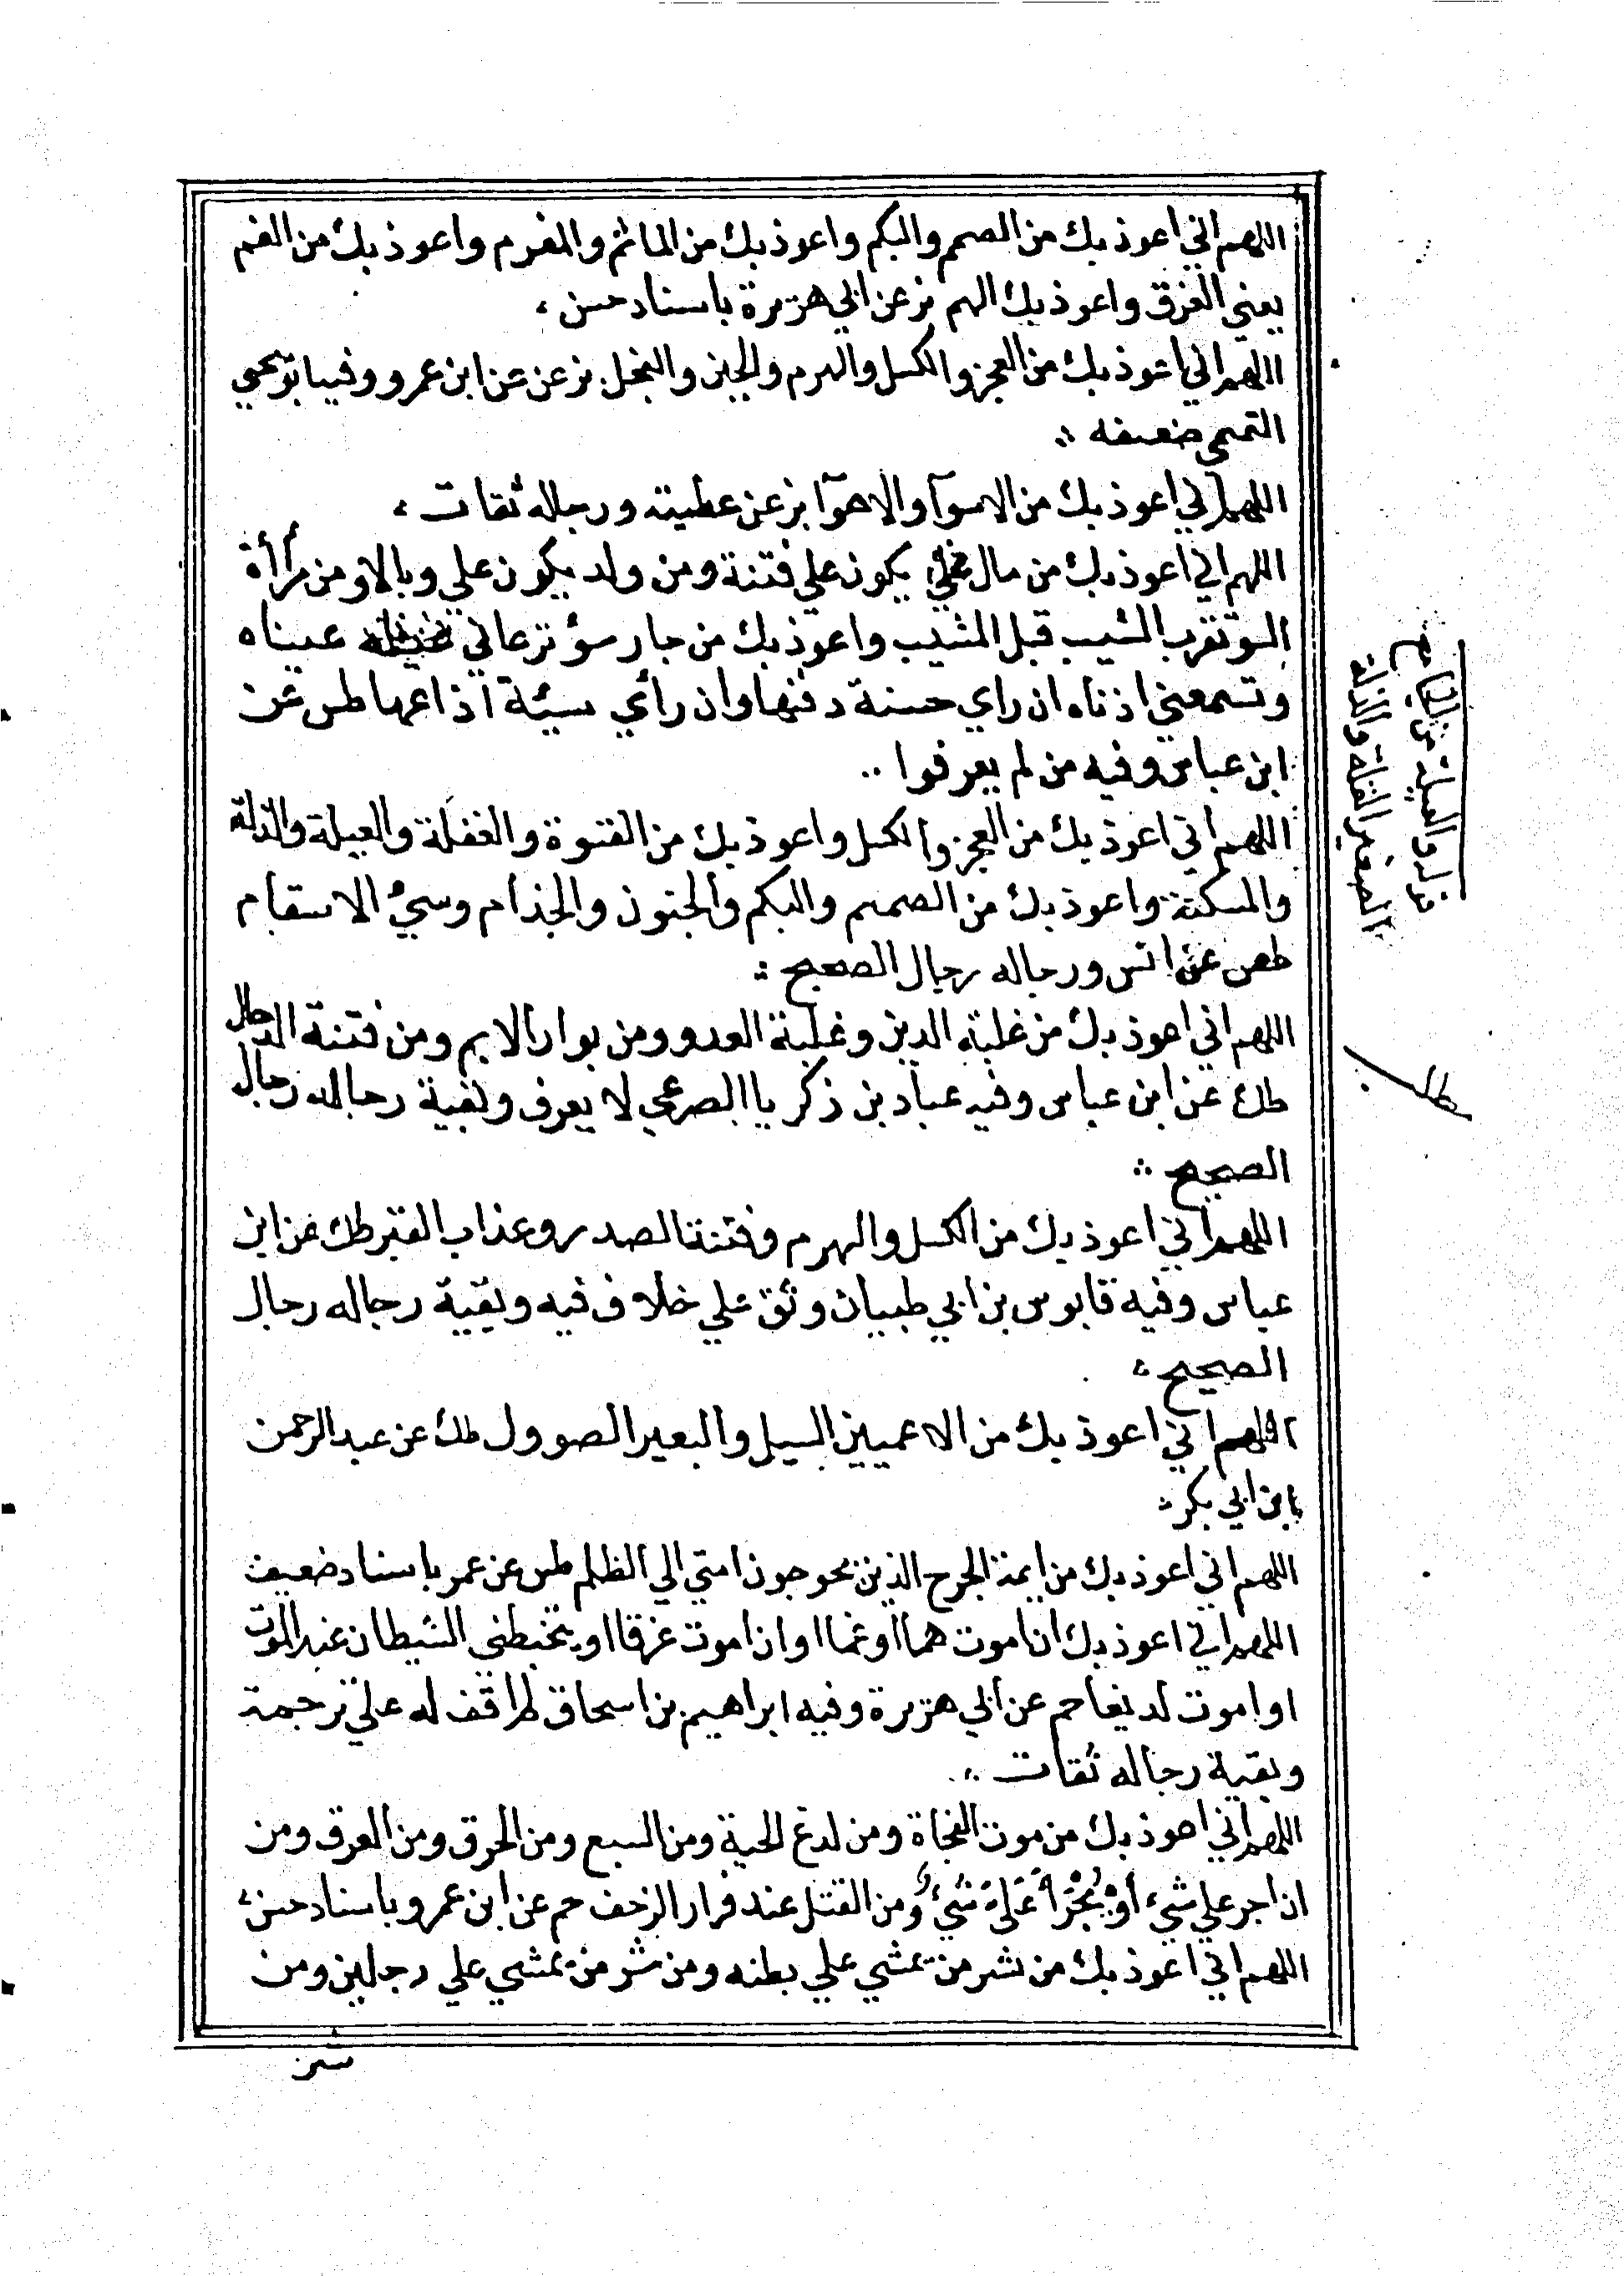 اللهم اني اعوذ بك من الصم والبكم واعوذ بك من الماثم والمغرم واعوذ بك من الغم
يعني الغرق واعوذ بك الهم بز عن ابي هريرة باسناد حسن ،
اللهم اني اعوذ بك من العجز والكسل والهرم والجبن والبخل بز عن عن ابن عمرو وفيه ابو يحيي
التميمي ضعيفه
اللهم اني اعوذ بك من الاسوآ والاهوآ بز عن عطية ورجاله ثقات ،
اللهم اني اعوذ بك من مال يكون علي فتنة ومن ولد يكون علي وبالا ومن مرأة
السوتقرب الشيب قبل المشيب واعوذ بك من جار سؤ ترعاني عيناه
وتسمعني اذناه ان راي حسنة دفنها وان رأي سيئة اذاعها طس عن
ابن عباس وفيه من لم يعرفوا ..
اللهم اني اعوذ بك من العجز والكسل واعوذ بك من القسوة والغفلة والعيلة والذلة
والمسكنة واعوذ بك من الصمم والبكم والجنون والجذام وسيئ الاسقام
طص عن انس ورجاله رجال الصحيح
اللهم اني اعوذ بك من غلبة الدين وغلبة العدو ومن بوار الايم ومن فتنة الدجال
طك عن ابن عباس وفيه عباد بن زكريا الصرعي لا يعرف وبقية رجاله رجال
الصحيح
اللهم اني اعوذ بك من الكسل والهرم وفتنة الصدر وعذاب القبر طك عن ابن
عباس وفيه قابوس بن ابي ظبيان وثق علي خلاف فيه وبقية رجاله رجال
الصحيح ،
اللهم اني اعوذ بك من الاعميين السيل والبعير الصوول طك عن عبد الرحمن
ابن ابي بكر
اللهم اني اعوذ بك من ايمة الجرح الذين يخرجون امتي الي الظلم طس عن عمر باسناد ضعيف
اللهم اني اعوذ بك ان اموت هما او غما او ان اموت غرقا او يتخبطني الشيطان عند الموت
او اموت لديغا حم عن ابي هريرة وفيه ابراهيم بن اسحاق لم اقف له علي ترجمة
وبقية رجاله ثقات
اللهم اني اعوذ بك من موت الفجاة ومن لدغ الحية ومن السبع ومن الحرق ومن الغرق ومن
ان اخر علي شيء أو يخر علي شيء ومن القتل عند فرار الزحف حم عن ابن عمرو باسناد حسن ،
اللهم اني اعوذ بك من شر من يمشي علي بطنه ومن شر من يمشي علي رجلين ومن